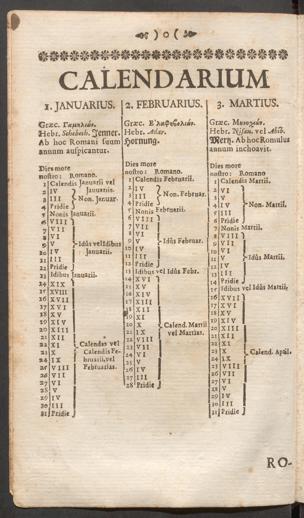 ) o (
CALENDARIUM
1. JANUARIUS.
Græc. Γαμηλιών.
Hebr. Schebeth. Jenner.
Ab hoc Romani suum
annum auspicantur.
Dies more
nostro: Romano.
1 Calendis Januarii vel
2 IV Januariis.
3 III Non. Januar.
4 Pridie
5 Nonis Januarii.
6 VIII
7 VII
8 VI
9 V Idûs vel Idibus
10 IV Januariis.
11 III
12 Pridie
13 Idibus Januarii.
14 XIX
15 XVIII
16 XVII
17 XVI
18 XV
19 XIV
20 XIII
21 XII
22 XI Calendas vel
23 X Calendis Fe-
24 IX bruarii, vel
25 VIII Februarias.
26 VII
27 VI
28 V
29 IV
30 III
31 Pridie
2. FEBRUARIUS.
Græc. Ἐλαφηβολιών.
Hebr. Adar.
Hornung.
Dies more
nostro: Romano.
1 Calendis Februarii.
2 IV
3 III Non. Februar.
4 Pridie
5 Nonis Februarii.
6 VIII
7 VII
8 VI
9 V Idûs Februar.
10 IV
11 III
12 Pridie
13 Idibus vel Idûs Febr.
14 XVI
15 XV
16 XIV
17 XIII
18 XII
19 XI
20 X Calend. Martii
21 IX vel Martias.
22 VIII
23 VII
24 VI
25 V
26 IV
27 III
28 Pridie
3. MARTIUS.
Græc.
Hebr. Nisan. vel Abib.
Mertz. Ab hoc Romulus
annum inchoavit.
Dies more
nostro: Romano
1 Calendis Martii.
2 VI
3 V
4 IV Non. Martii.
5 III
6 Pridie
7 Nonis Martii.
8 VIII
9 VII
10 VI
11 V Idûs Martii.
12 IV
13 III
14 Pridie
15 Idibus vel Idûs Martii.
16 XVII
17 XVI
18 XV
19 XIV
20 XIII
21 XII
22 XI
23 X Calend. Apil.
24 IX
25 VIII
26 VII
27 VI
28 V
29 IV
30 III
31 Pridie
RO-